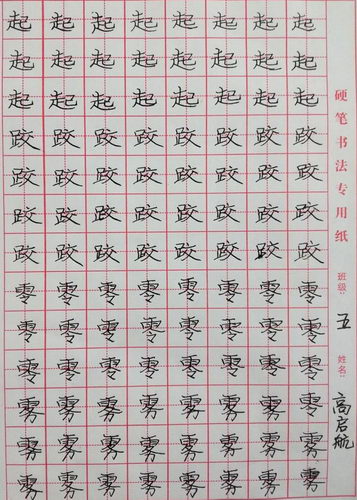 起起起起起起起起
起起起起起起起起
起起起起起起起起
跤跤跤跤跤跤跤跤
跤跤跤跤跤跤跤跤
跤跤跤跤跤跤跤跤
跤跤跤跤跤跤跤跤
零零零零零零零零
零零零零零零零零
零零零零零零零零
雾雾雾雾雾雾雾雾
雾雾雾雾雾雾雾雾
雾雾雾雾雾雾雾雾
硬笔书法专用纸
班级: 五
姓名: 高启航